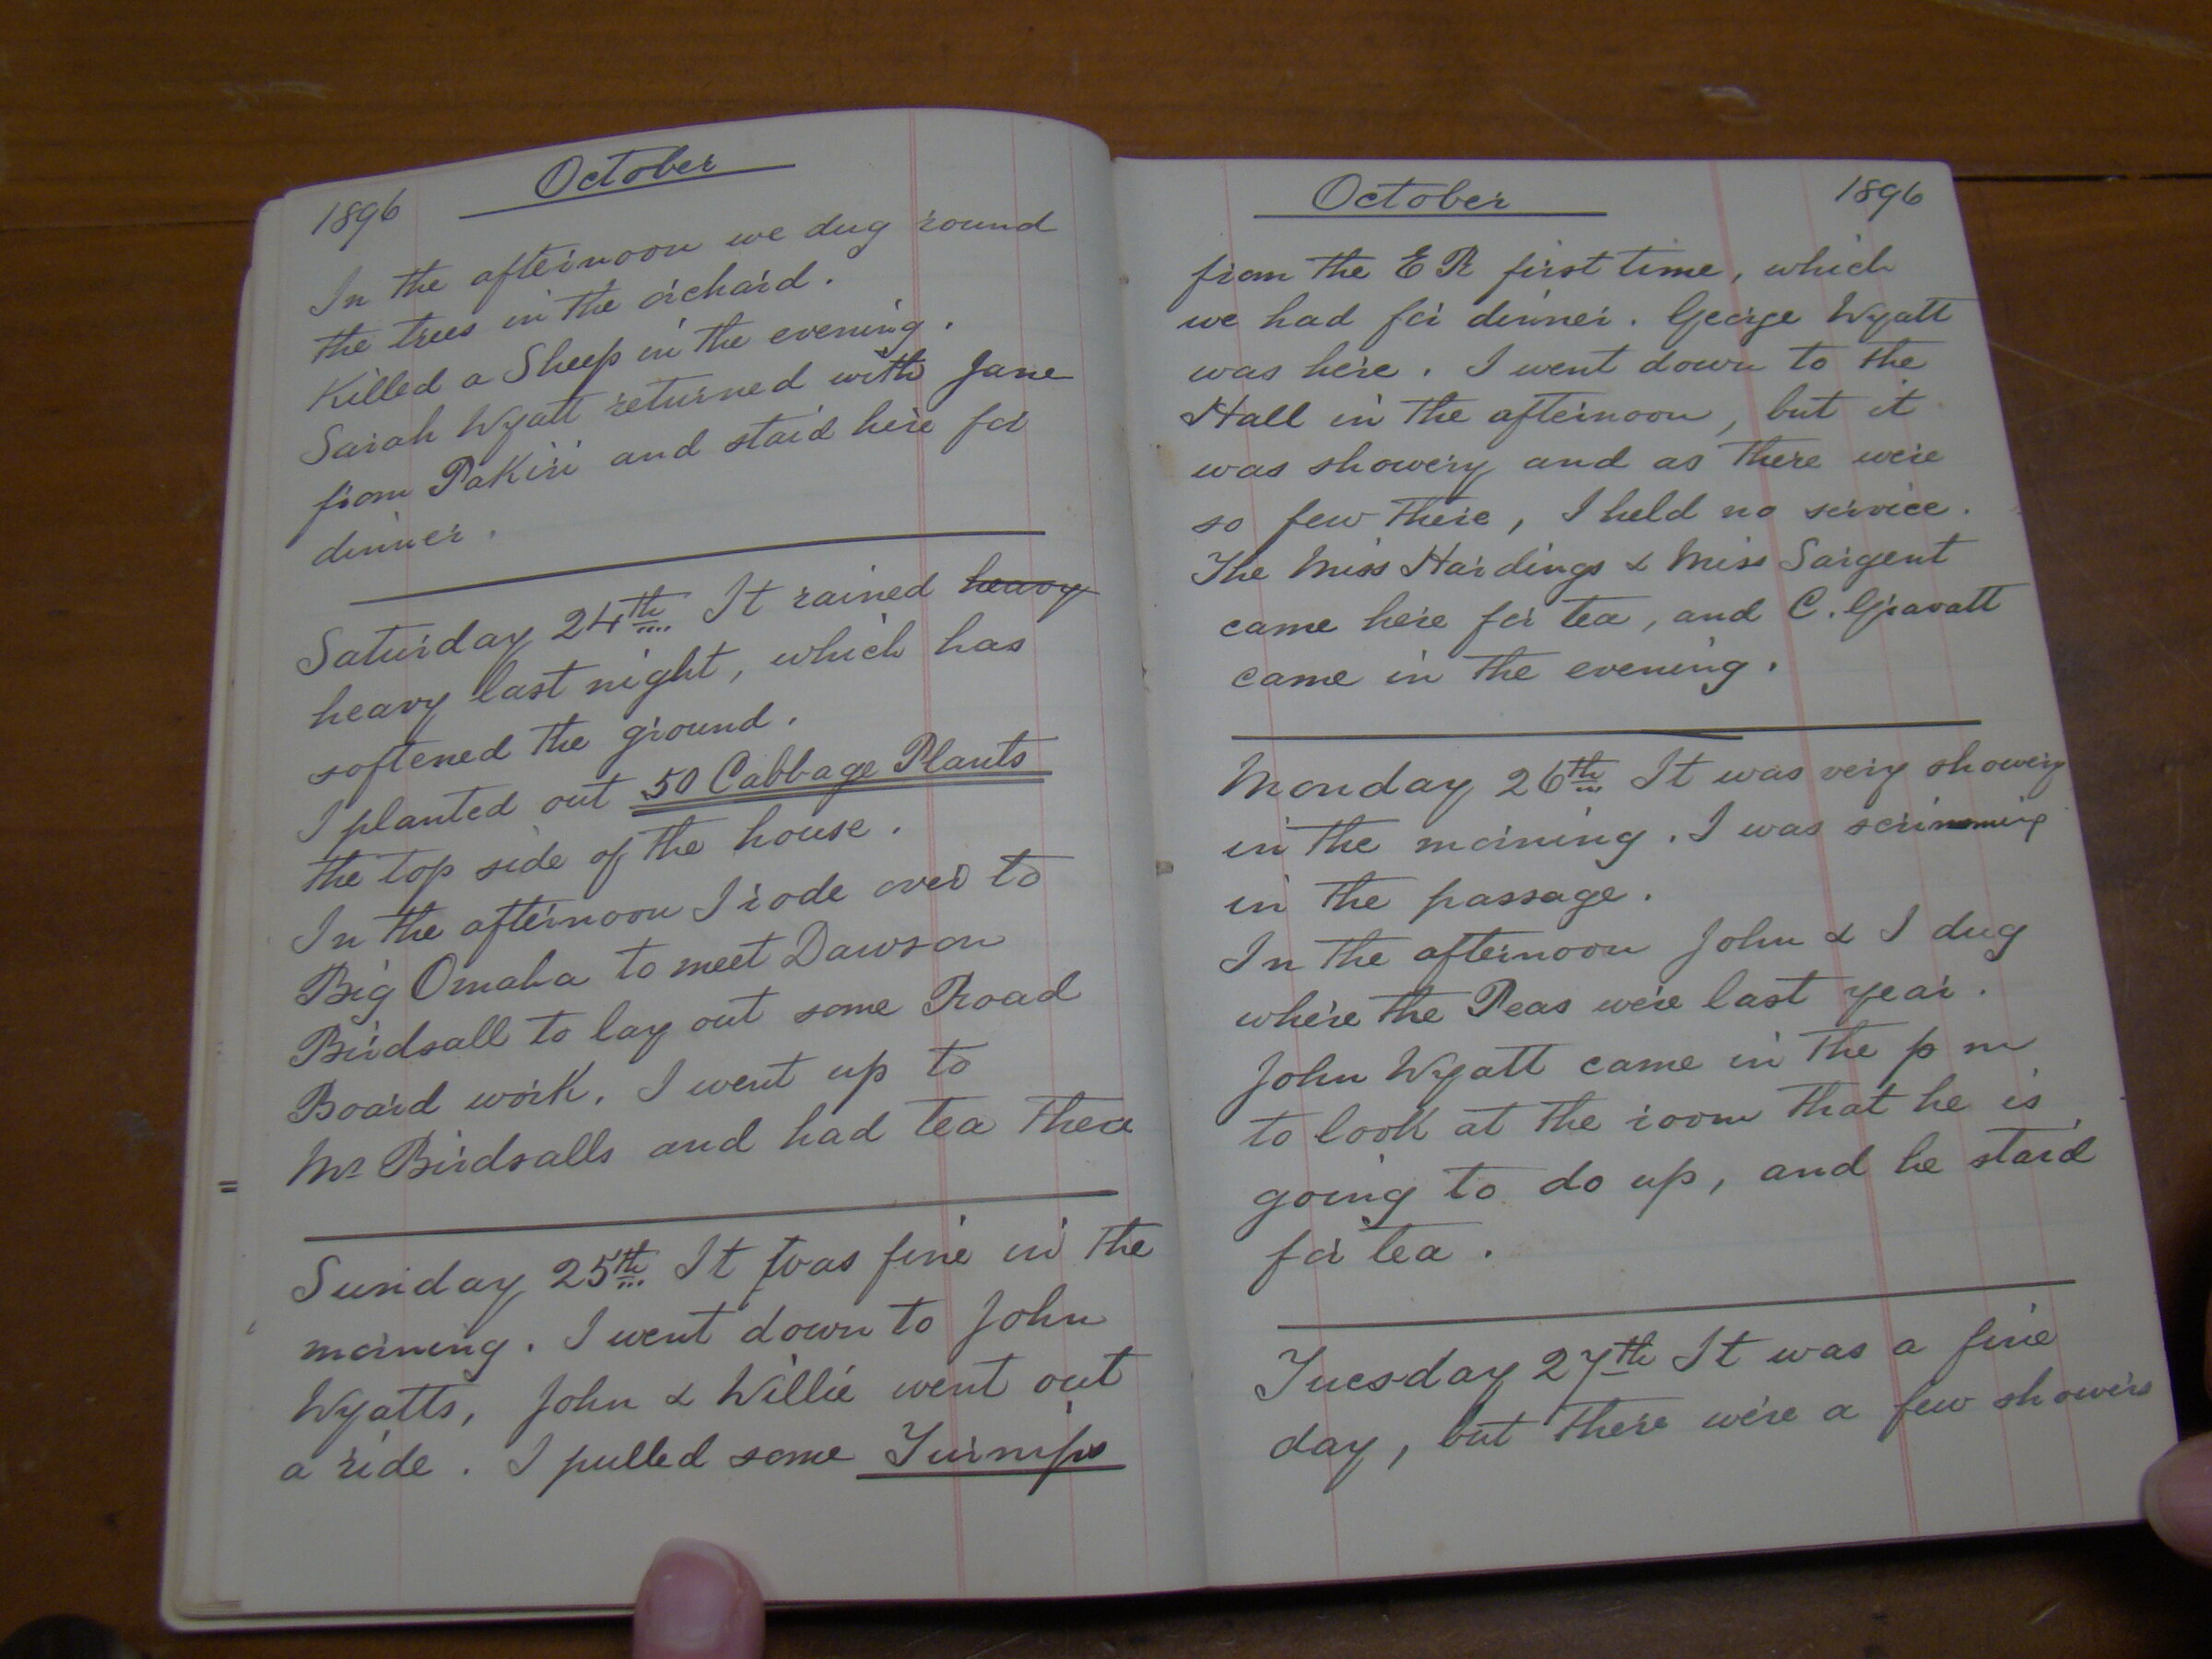 1896 October
In the afternoon we dug round
the trees in the orchard.
Killed a Sheep in the evening.
Sarah Wyatt returned with Jane
from Pakiri and staid here for
dinner.
Saturday 24th It rained heavy
heavy last night, which has
softened the ground.
I planted out 50 Cabbage Plants
the top side of the house.
In the afternoon I rode over to
Big Omaha to meet Dawson
Birdsall to lay out some Road
Board work. I went up to
Mr Birdsalls and had tea there
Sunday 25th It was fine in the
morning. I went down to John
Wyatts, John & Willie went out
a ride. I pulled some Turnips
October 1896
from the E R first time, which
we had for dinner. George Wyatt
was here. I went down to the
Hall in the afternoon, but it
was showery and as there were
so few there, I held no service.
The Miss Hardings & Miss Sargent
came here for tea, and C. Gravatt
came in the evening.
Monday 26th It was very showery
in the morning. I was
in the passage.
In the afternoon John & I dug
where the Peas were last year.
John Wyatt came in the p m
to look at the room that he is
going to do up, and he staid
for tea.
Tuesday 27th It was a fine
day, but there were a few showers